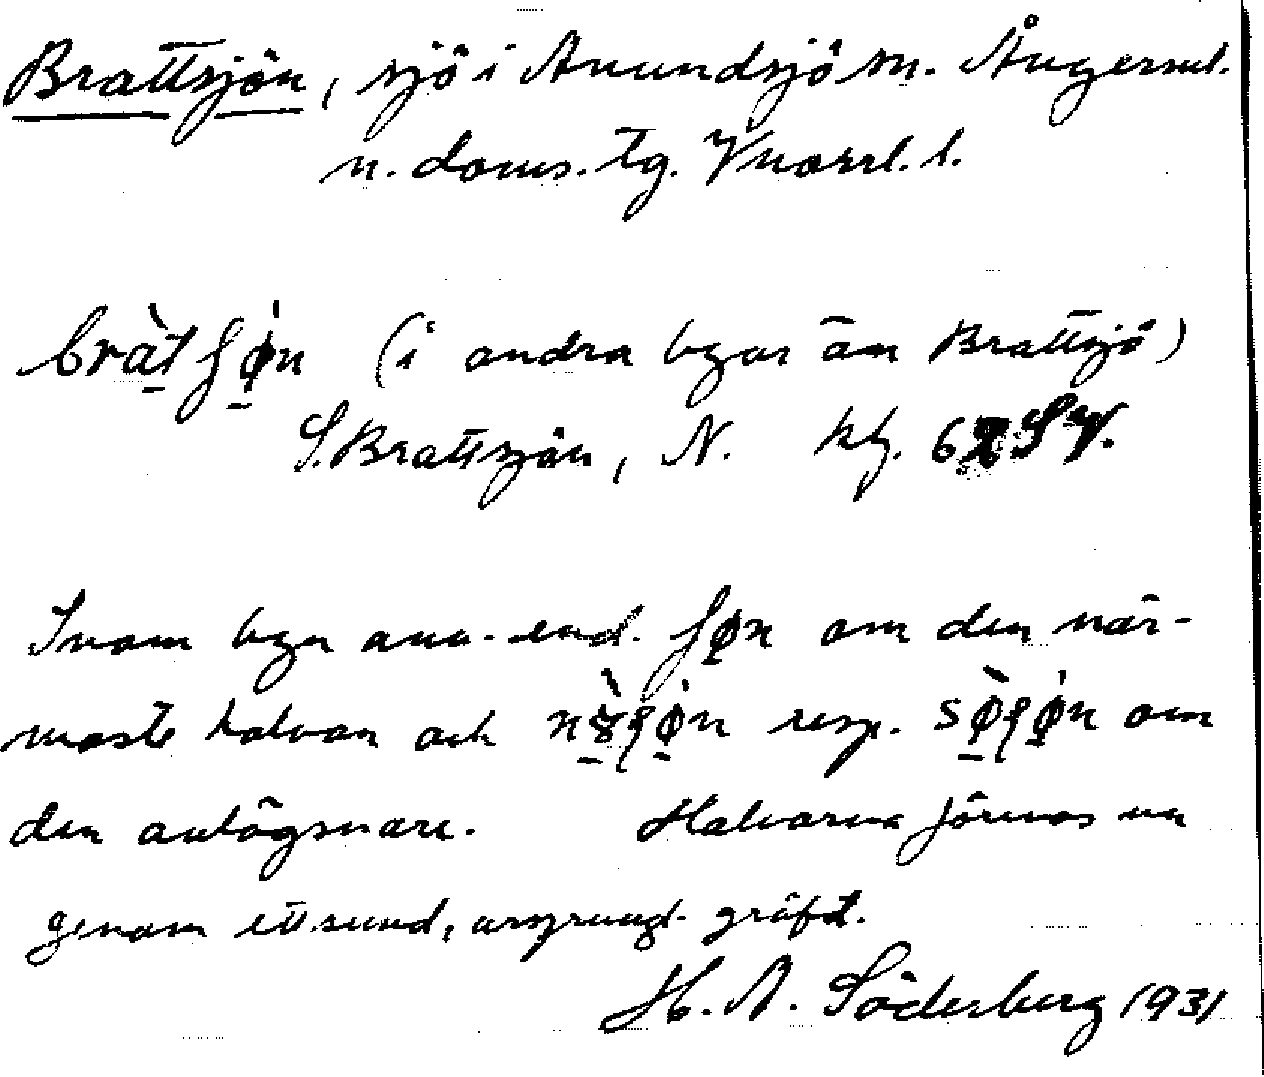 Brattsjön, sjö i Anundsjö sn. Ångerml.
n. doms. tg. Vnorrl. l.
bràtʃøn (i andra byar än Brattsjö)
S. Brattsjön, N. kbl. 62 SV.
Inom byn anv. end. ʃøn om den när-
maste halvan och n resp. om
den avlägsnare. Halvorna förenas nu
genom ett sund, ursprungl. gräfd.
H. A. Söderberg 1931